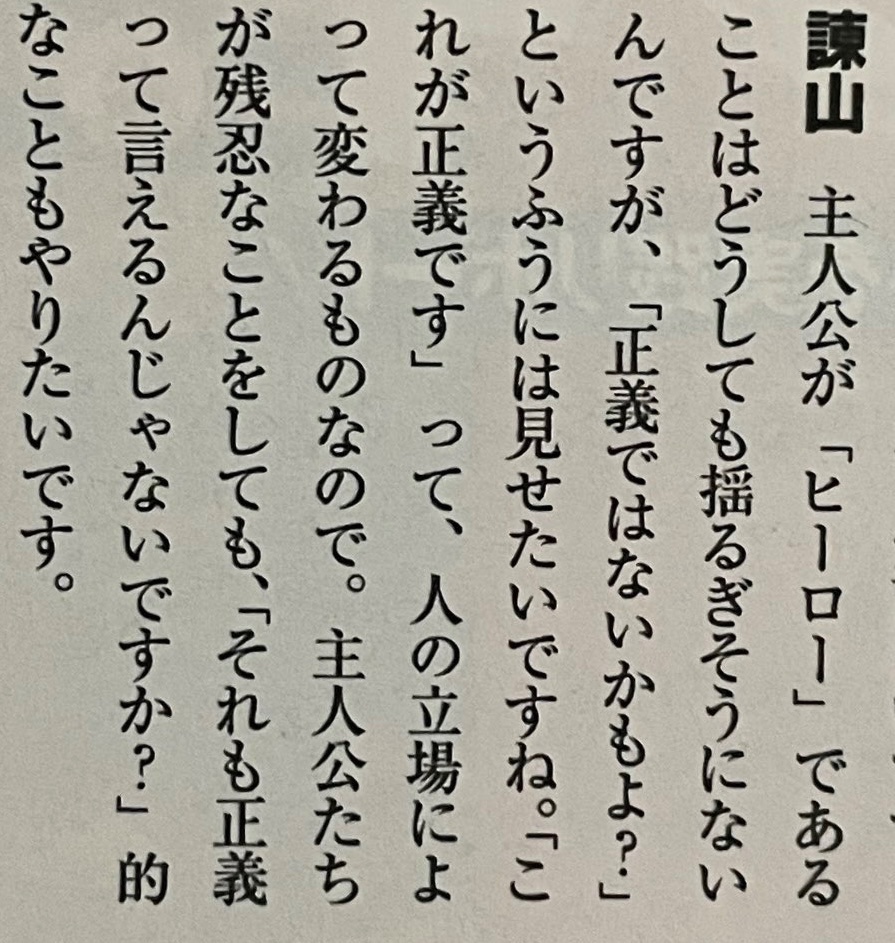 諫山　主人公が「ヒーロー」である
ことはどうしても揺るぎそうにない
んですが、「正義ではないかもよ？」
というふうには見せたいですね。「こ
れが正義です」って、人の立場によ
って変わるものなので。主人公たち
が残忍なことをしても、「それも正義
って言えるんじゃないですか？」的
なこともやりたいです。